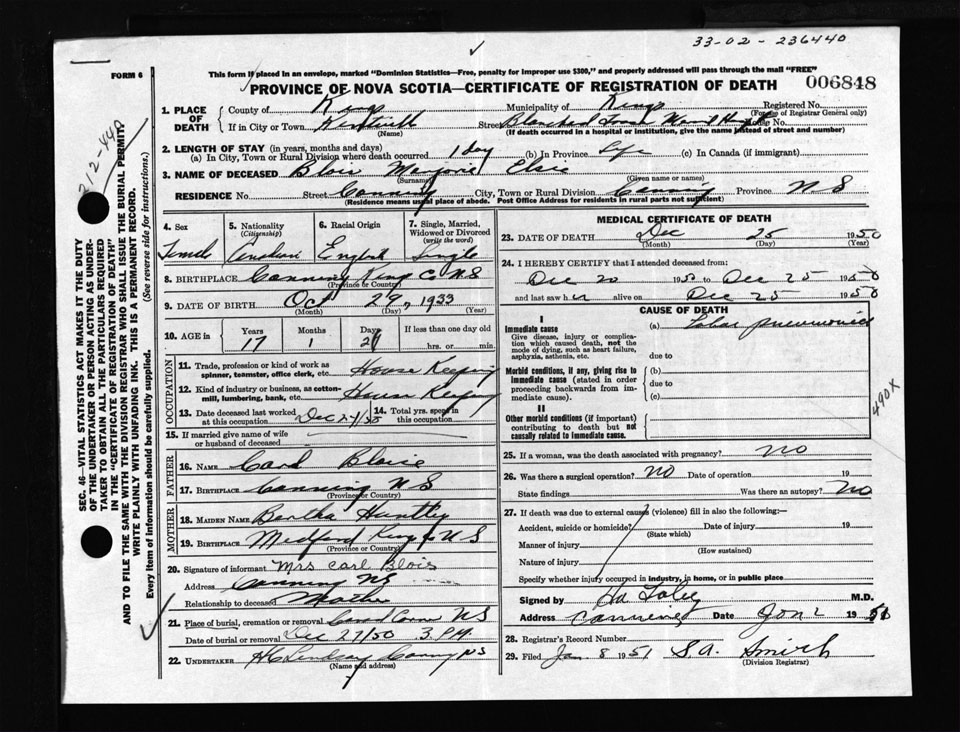 33-02-236440
FORM 6
This form if placed in an envelope, marked "Dominion Statistics—Free, penalty for improper use $300," and properly addressed will pass through the mail "FREE"
PROVINCE OF NOVA SCOTIA—CERTIFICATE OF REGISTRATION OF DEATH 006848
1. PLACE OF DEATH County of Kings Municipality of Kings Registered No.
(For use of Registrar General only)
If in City or Town Kentville Street Blanchard House No.
(Name) (If death occurred in a hospital or institution, give the name instead of street and number)
2. LENGTH OF STAY (in years, months and days)
(a) In City, Town or Rural Division where death occurred 1 day (b) In Province Life (c) In Canada (if immigrant)
3. NAME OF DECEASED Blois Marjorie Elsie
(Surname) (Given name or names)
RESIDENCE No. Street Canning City, Town or Rural Division Canning Province N S
(Residence means usual place of abode. Post Office Address for residents in rural parts not sufficient)
4. Sex Female
5. Nationality (Citizenship) Canadian
6. Racial Origin English
7. Single, Married, Widowed or Divorced (write the word) Single
8. BIRTHPLACE Canning Kings Co N S
(Province or Country)
9. DATE OF BIRTH Oct 29, 1933
(Month) (Day) (Year)
10. AGE in Years Months Days If less than one day old
17 1 hrs. or min.
OCCUPATION
11. Trade, profession or kind of work as spinner, teamster, office clerk, etc. House Keeping
12. Kind of industry or business, as cotton-mill, lumbering, bank, etc. House Keeping
13. Date deceased last worked at this occupation Dec 14. Total yrs. spent in this occupation
15. If married give name of wife or husband of deceased
FATHER
16. NAME Carl Blois
17. BIRTHPLACE Canning N S
(Province or Country)
MOTHER
18. MAIDEN NAME Bertha Huntley
19. BIRTHPLACE Medford Kings Co N S
(Province or Country)
20. Signature of informant Mrs Carl Blois
Address Canning NS
Relationship to deceased Mother
21. Place of burial, cremation or removal NS
Date of burial or removal Dec 27/50 3 P.M.
22. UNDERTAKER Lindsay NS
(Name and address)
MEDICAL CERTIFICATE OF DEATH
23. DATE OF DEATH Dec 25 1950
(Month) (Day) (Year)
24. I HEREBY CERTIFY that I attended deceased from:
Dec 20 1950 to Dec 25 1950
and last saw her alive on Dec 25 1950
CAUSE OF DEATH
I
Immediate cause (a) Lobar pneumonia
Give disease, injury or complication which caused death, not the mode of dying, such as heart failure, asphyxia, asthenia, etc.
due to
Morbid conditions, if any, giving rise to immediate cause (stated in order proceeding backwards from immediate cause).
(b)
due to
(c)
490X
II
Other morbid conditions (if important) contributing to death but not causally related to immediate cause.
25. If a woman, was the death associated with pregnancy? no
26. Was there a surgical operation? NO Date of operation 19
State findings Was there an autopsy? NO
27. If death was due to external causes (violence) fill in also the following:—
Accident, suicide or homicide? Date of injury 19
(State which)
Manner of injury
(How sustained)
Nature of injury
Specify whether injury occurred in industry, in home, or in public place
Signed by M.D.
Address Canning Date Jan 2 1951
28. Registrar's Record Number
29. Filed Jan 8 1951 S.A. Smith
(Division Registrar)
SEC. 46—VITAL STATISTICS ACT MAKES IT THE DUTY
OF THE UNDERTAKER OR PERSON ACTING AS UNDER-
TAKER TO OBTAIN ALL THE PARTICULARS REQUIRED
IN THE "CERTIFICATE OF REGISTRATION OF DEATH"
AND TO FILE THE SAME WITH THE DIVISION REGISTRAR WHO SHALL ISSUE THE BURIAL PERMIT.
WRITE PLAINLY WITH UNFADING INK. THIS IS A PERMANENT RECORD.
Every item of information should be carefully supplied. (See reverse side for instructions.)